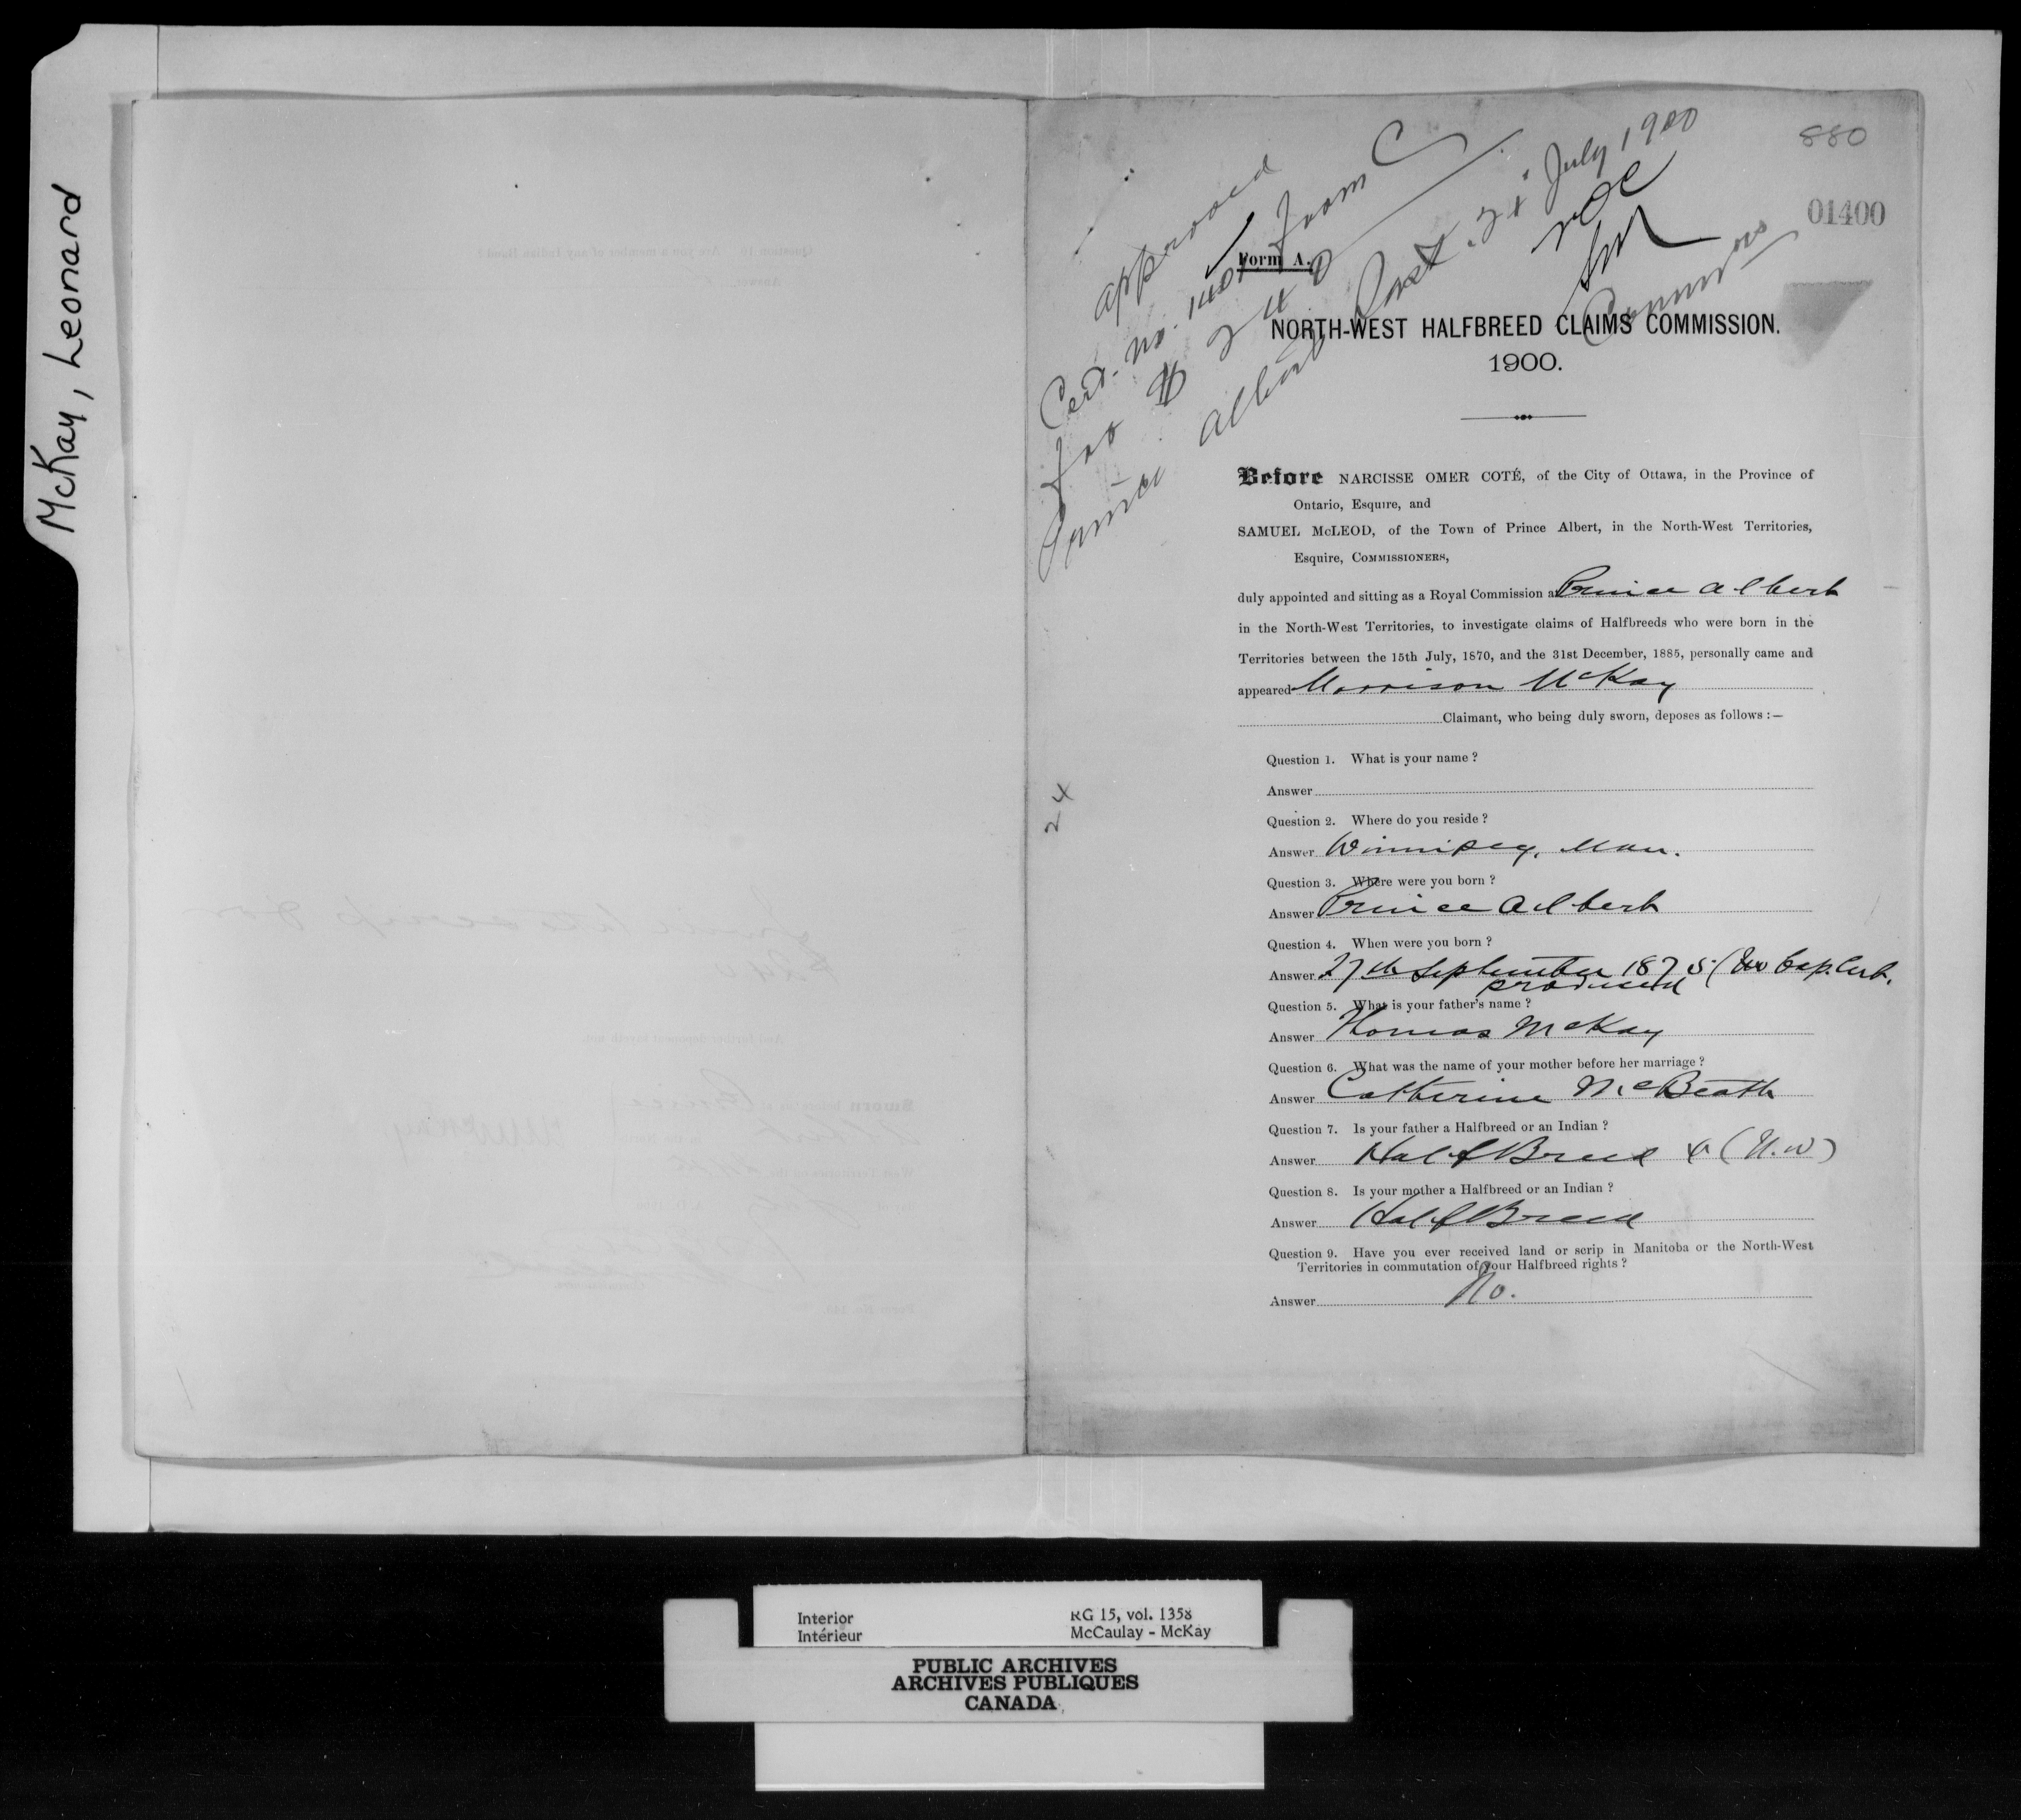 McKay, Leonard
880
01400
approved
Cert. no. 1401 Form C
for $240
Prince Albert Sask. 21st July 1900
NOC
SM
Commrs
Form A.
NORTH-WEST HALFBREED CLAIMS COMMISSION.
1900.
Before NARCISSE OMER COTÉ, of the City of Ottawa, in the Province of
Ontario, Esquire, and
SAMUEL McLEOD, of the Town of Prince Albert, in the North-West Territories,
Esquire, COMMISSIONERS,
duly appointed and sitting as a Royal Commission at Prince Albert
in the North-West Territories, to investigate claims of Halfbreeds who were born in the
Territories between the 15th July, 1870, and the 31st December, 1885, personally came and
appeared Morrison McKay
Claimant, who being duly sworn, deposes as follows :—
Question 1. What is your name ?
Answer
24
Question 2. Where do you reside ?
Answer Winnipeg, Man.
Question 3. Where were you born ?
Answer Prince Albert
Question 4. When were you born ?
Answer 27th September 1875 (No bap. Cert.
produced
Question 5. What is your father's name ?
Answer Thomas McKay
Question 6. What was the name of your mother before her marriage ?
Answer Catherine McBeath
Question 7. Is your father a Halfbreed or an Indian ?
Answer HalfBreed (N.W)
Question 8. Is your mother a Halfbreed or an Indian ?
Answer HalfBreed
Question 9. Have you ever received land or scrip in Manitoba or the North-West
Territories in commutation of your Halfbreed rights ?
Answer No.
Interior RG 15, vol. 1358
Intérieur McCaulay - McKay
PUBLIC ARCHIVES
ARCHIVES PUBLIQUES
CANADA